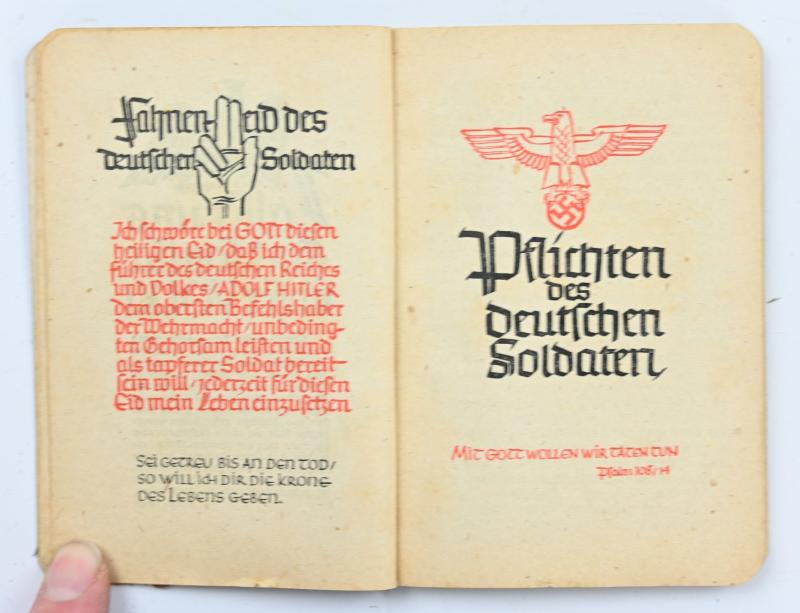 Fahnen-eid des
deutschen Soldaten
Ich schwöre bei GOTT diesen
heiligen Eid/daß ich dem
Führer des deutschen Reiches
und Volkes/ADOLF HITLER
dem obersten Befehlshaber
der Wehrmacht/unbeding-
ten Gehorsam leisten und
als tapferer Soldat bereit
sein will/jederzeit für diesen
Eid mein Leben einzusetzen
SEI GETREU BIS AN DEN TOD/
SO WILL ICH DIR DIE KRONE
DES LEBENS GEBEN.
Pflichten
des
deutschen
Soldaten
MIT GOTT WOLLEN WIR TATEN TUN
Psalm 108/14